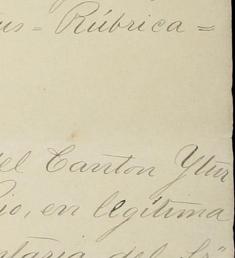 us = Rúbrica =
del Canton Ytur
io, en legítima
ntaria del Sr